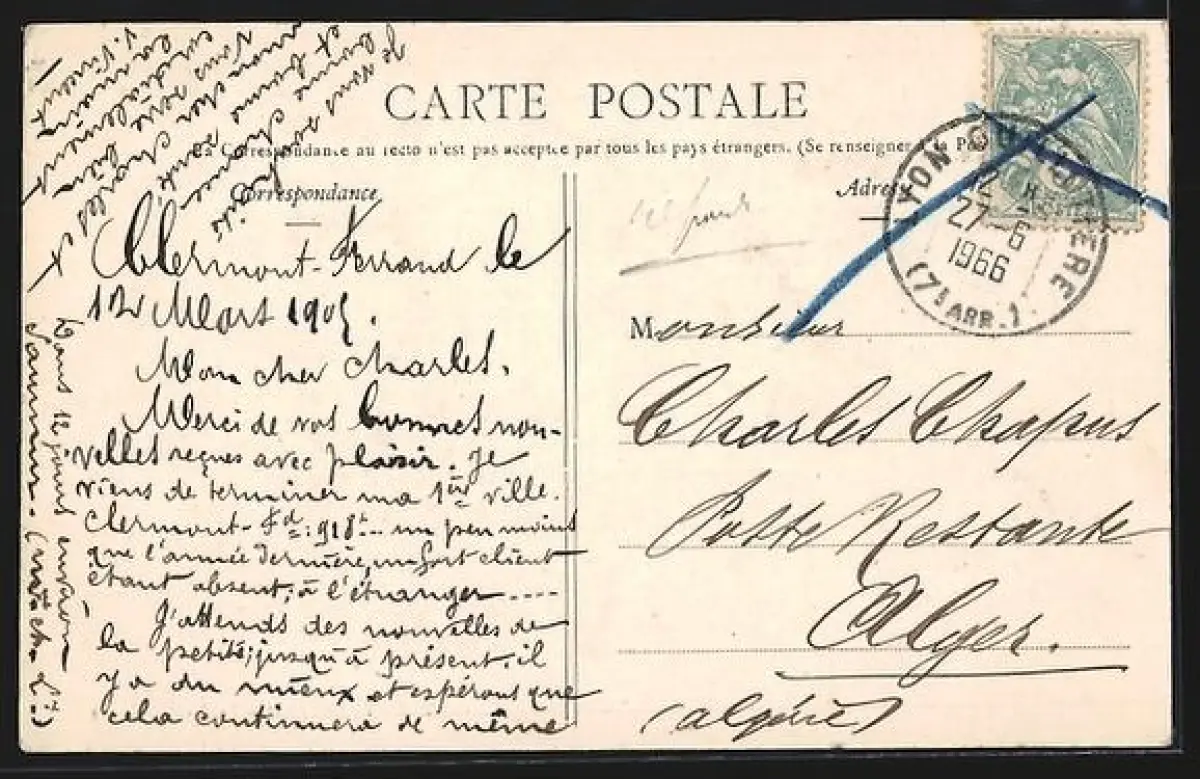 CARTE POSTALE
La Correspondance au recto n'est pas acceptée par tous les pays étrangers. (Se renseigner à la Po
Correspondance
Clermont-Ferrand le
12 Mars 1905.
Mon cher Charles,
Merci de vos bonnes nou-
velles reçues avec plaisir. Je
viens de terminer ma 1ère ville.
Clermont-Fd: 918f... un peu moins
que l'année dernière, un fort client
étant absent, à l'étranger ----
J'attends des nouvelles de
la petite; jusqu'à présent, il
y a du mieux et espérons que
cela continuera de même
Je vous souhaite
bonne chance
et bonne santé,
mon cher Charles et
vous serre bien
cordialement
la main
J. Vincent
Dans 12 jours environ
Saumur
Adresse
Monsieur
Charles Chapus
Poste Restante
Alger.
(algérie)
POSTES
LYON GUILLOTIERE
12 H
27-6
1966
(7e ARR.)